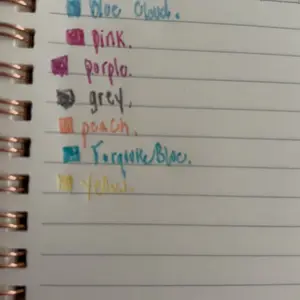 blue Cloud.
pink.
purple.
grey.
peach.
Turquoise Blue.
Yellow.